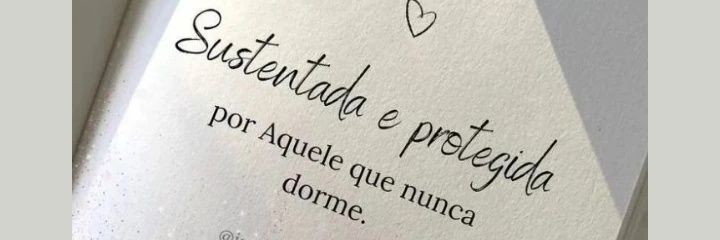 Sustentada e protegida
por Aquele que nunca
dorme.